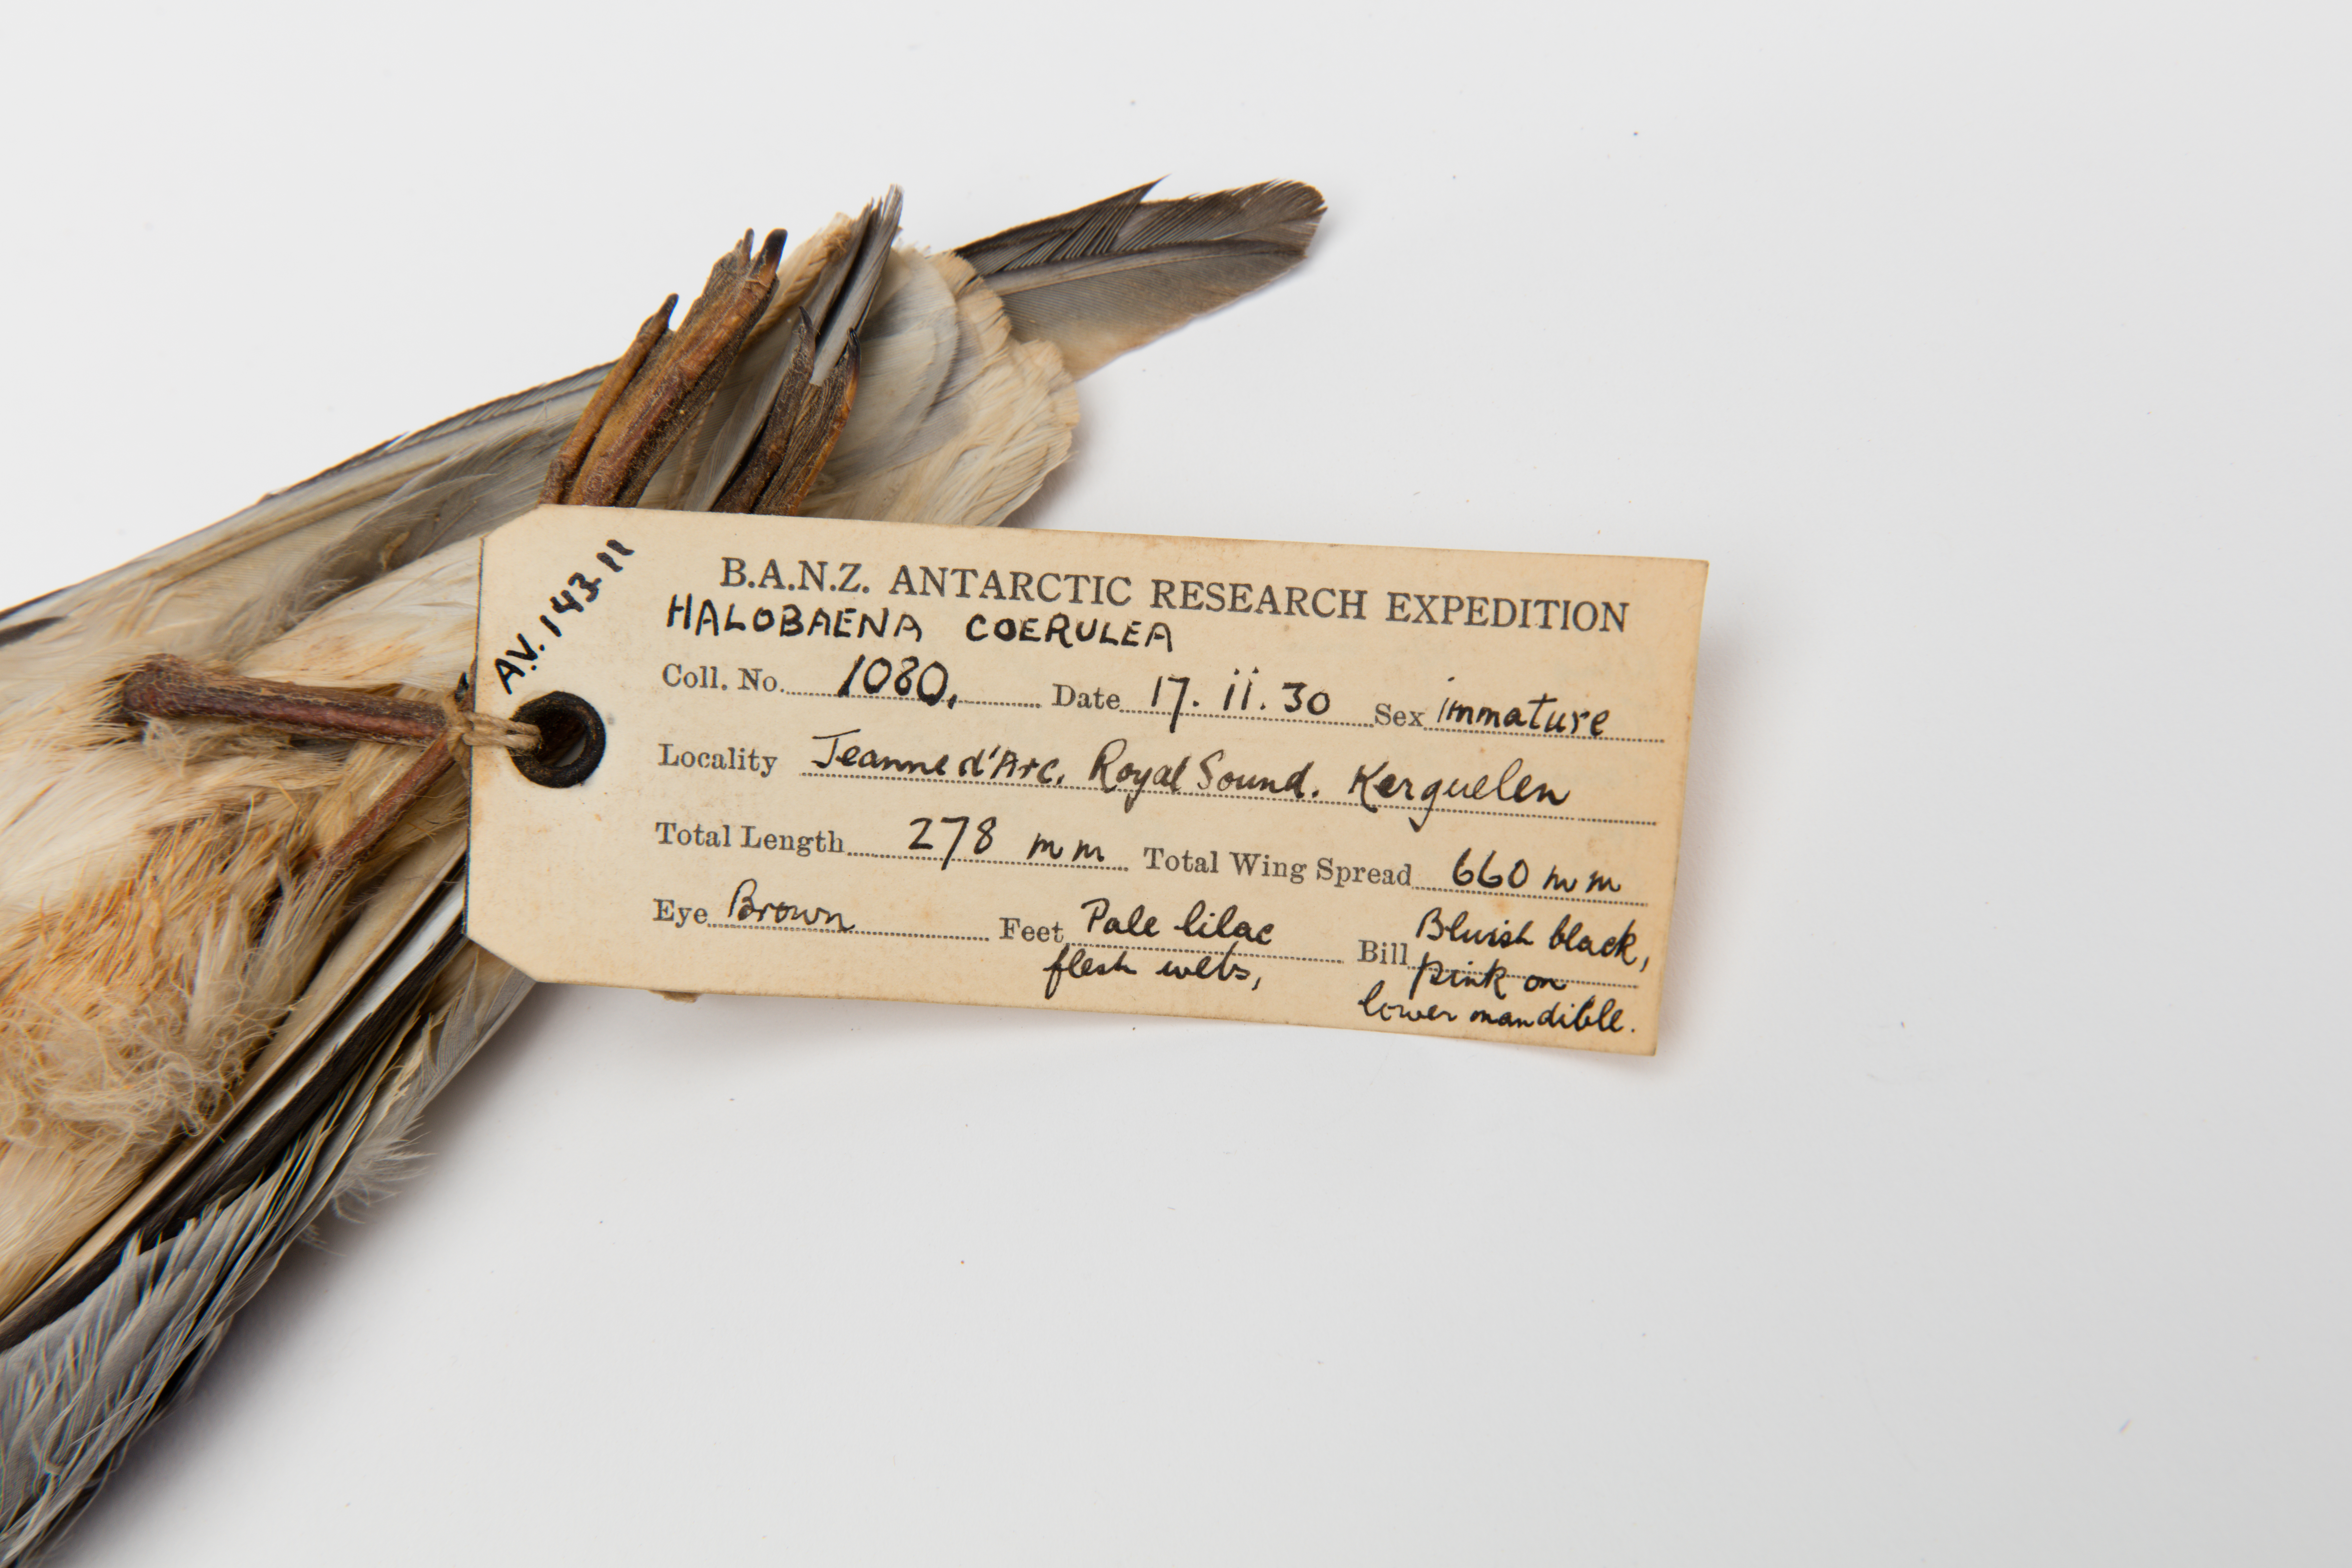 A.V. 143.11
B.A.N.Z. ANTARCTIC RESEARCH EXPEDITION
HALOBAENA COERULEA
Coll. No. 1080. Date 17. ii. 30 Sex immature
Locality Jeanne d'Arc. Royal Sound. Kerguelen
Total Length 278 mm Total Wing Spread 660 mm
Eye Brown Feet Pale lilac Bill Bluish black,
flesh webs, pink on
lower mandible.